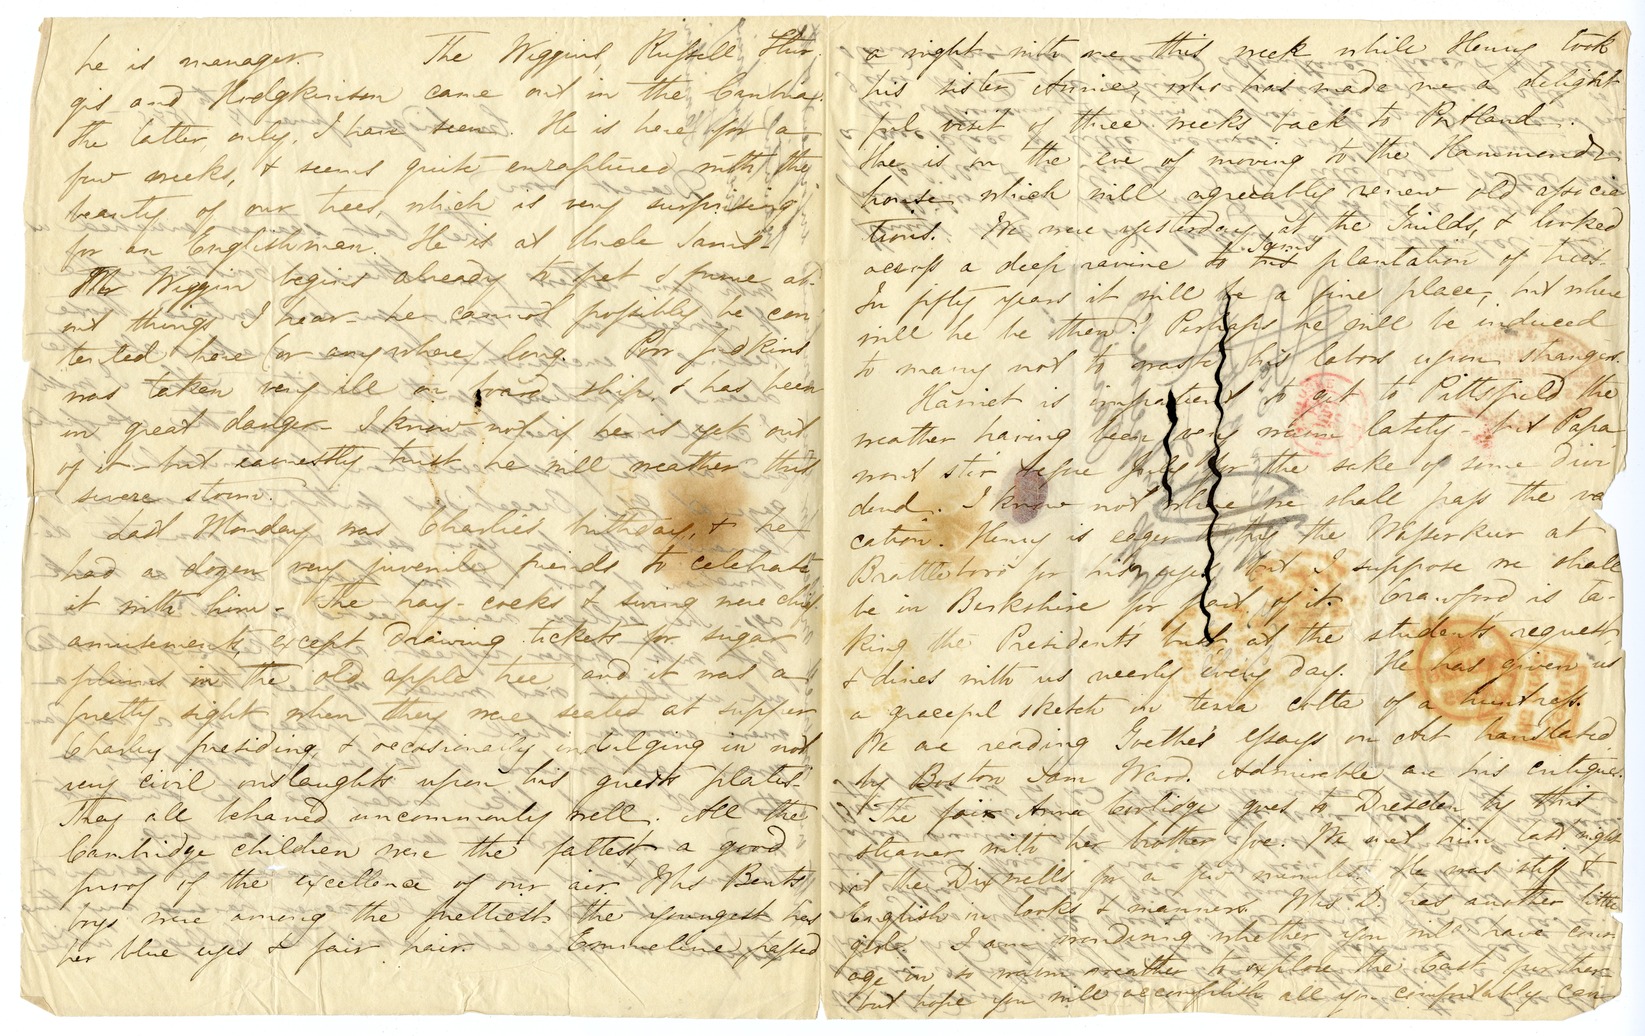 he is manager. The Wiggins, Russell Stur
gis and Hodgkinson came out in the Cambria.
the latter only, I have seen. He is here for a
few weeks, & seems quite enraptured with the
beauty of our trees, which is very surprising
for an Englishman. He is at Uncle Sam's.
Mr Wiggin begins already to fret & fume ab-
out things I hear - he cannot possibly be con
tented here (or anywhere) long. Poor Judkins
was taken very ill on board ship, & has been
in great danger - I know not if he is yet out
of it - but earnestly trust he will weather this
severe storm.
Last Monday was Charlie's birthday, & he
had a dozen very juvenile friends to celebrate
it with him - The hay-cocks & swing were chief
amusements, except drawing tickets for sugar
plums in the old apple tree and it was a
pretty sight when they were seated at supper
Charley presiding, & occasionally indulging in not
very civil onslaughts upon his guests plates -
They all behaved uncommonly well. All the
Cambridge children were the fattest, a good
proof of the excellence of our air. Mrs Bents
boys were among the prettiest, the youngest has
her blue eyes & fair hair. Emmeline passed
a night with me this week, while Henry took
his sister Annie, who has made me a delight
ful visit of three weeks back to Portland.
She is on the eve of moving to the Hammond's
house which will agreeably renew old associa
tions. We were yesterday at the Guilds, & looked
across a deep ravine to Sam's plantation of trees.
In fifty years it will be a fine place, but where
will he be then? Perhaps he will be induced
to marry not to waste his labors upon strangers.
Harriet is impatient to get to Pittsfield the
weather having been very warm lately - but Papa
wont stir before July for the sake of some divi
dend. I know not where we shall pass the va
cation. Henry is eager to try the Wasserkur at
Brattleboro for his eyes but I suppose we shall
be in Berkshire for part of it. Crawford is ta-
king the Presidents bust, at the students request,
& dines with us nearly every day. He has given us
a graceful sketch in terra cotta of a huntress.
We are reading Goethe's essays on Art translated
by Boston Sam Ward. Admirable are his critiques.
The fair Anna Coolidge goes to Dresden by this
steamer with her brother Joe. We met him last night
at the Dixwells for a few minutes. He was stiff &
English in looks & manners. Mrs. D. has another little
girl. I am wondering whether you will have cour
age in so warm weather to explore the East further
but hope you will accomplish all you comfortably can